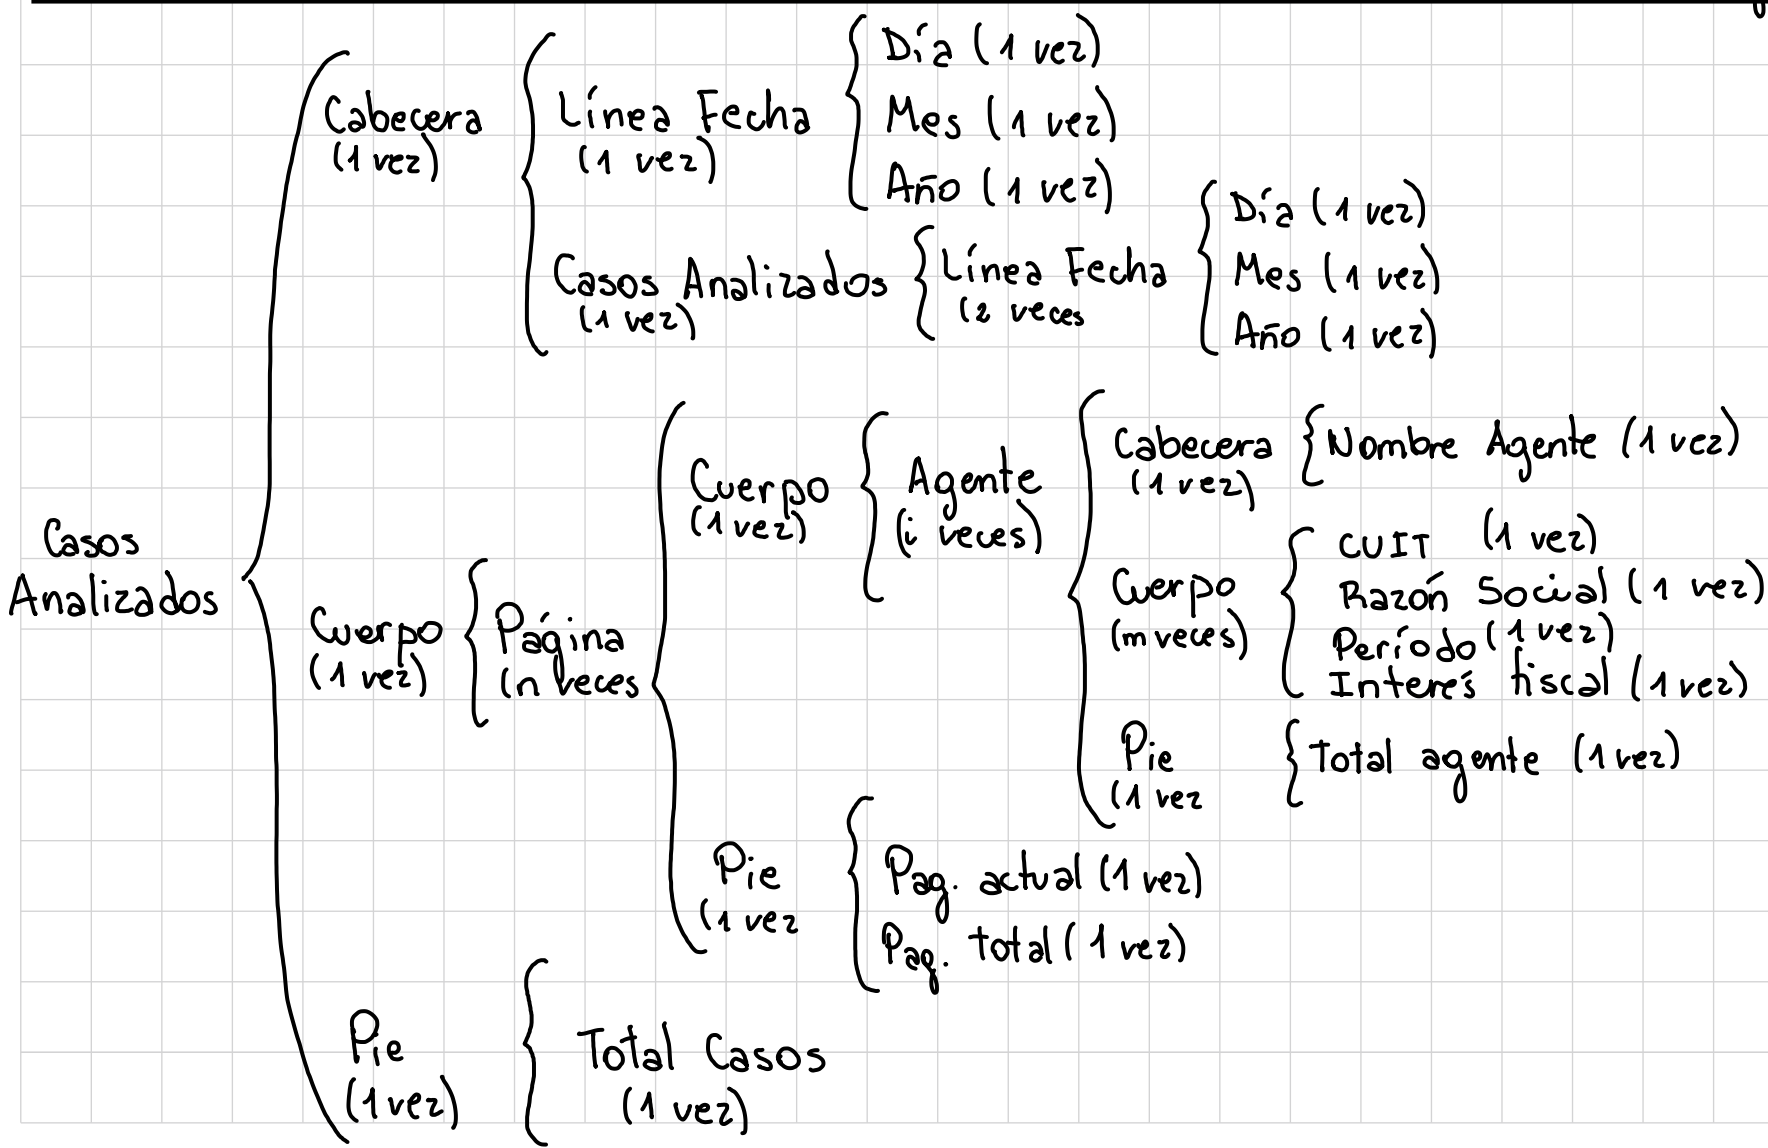 Día (1 vez)
Cabecera
(1 vez)
Línea Fecha
(1 vez)
Mes (1 vez)
Año (1 vez)
Casos Analizados
(1 vez)
Línea Fecha
(2 veces
Día (1 vez)
Mes (1 vez)
Año (1 vez)
Casos
Analizados
Cuerpo
(1 vez)
Página
(n veces
Cuerpo
(1 vez)
Agente
(i veces)
Cabecera
(1 vez)
Nombre Agente (1 vez)
Cuerpo
(m veces)
CUIT (1 vez)
Razón Social (1 vez)
Período (1 vez)
Interés fiscal (1 vez)
Pie
(1 vez
Total agente (1 vez)
Pie
(1 vez
Pag. actual (1 vez)
Pag. total (1 vez)
Pie
(1 vez)
Total Casos
(1 vez)